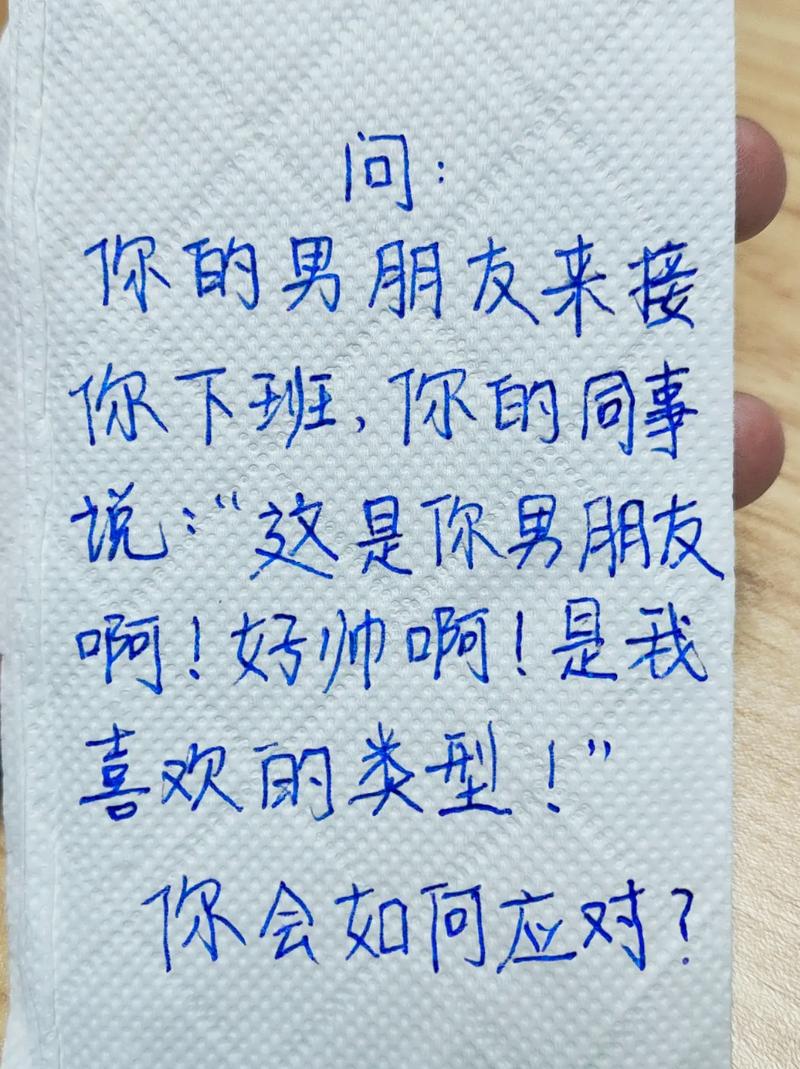 问：
你的男朋友来接
你下班，你的同事
说：“这是你男朋友
啊！好帅啊！是我
喜欢的类型！”
你会如何应对？